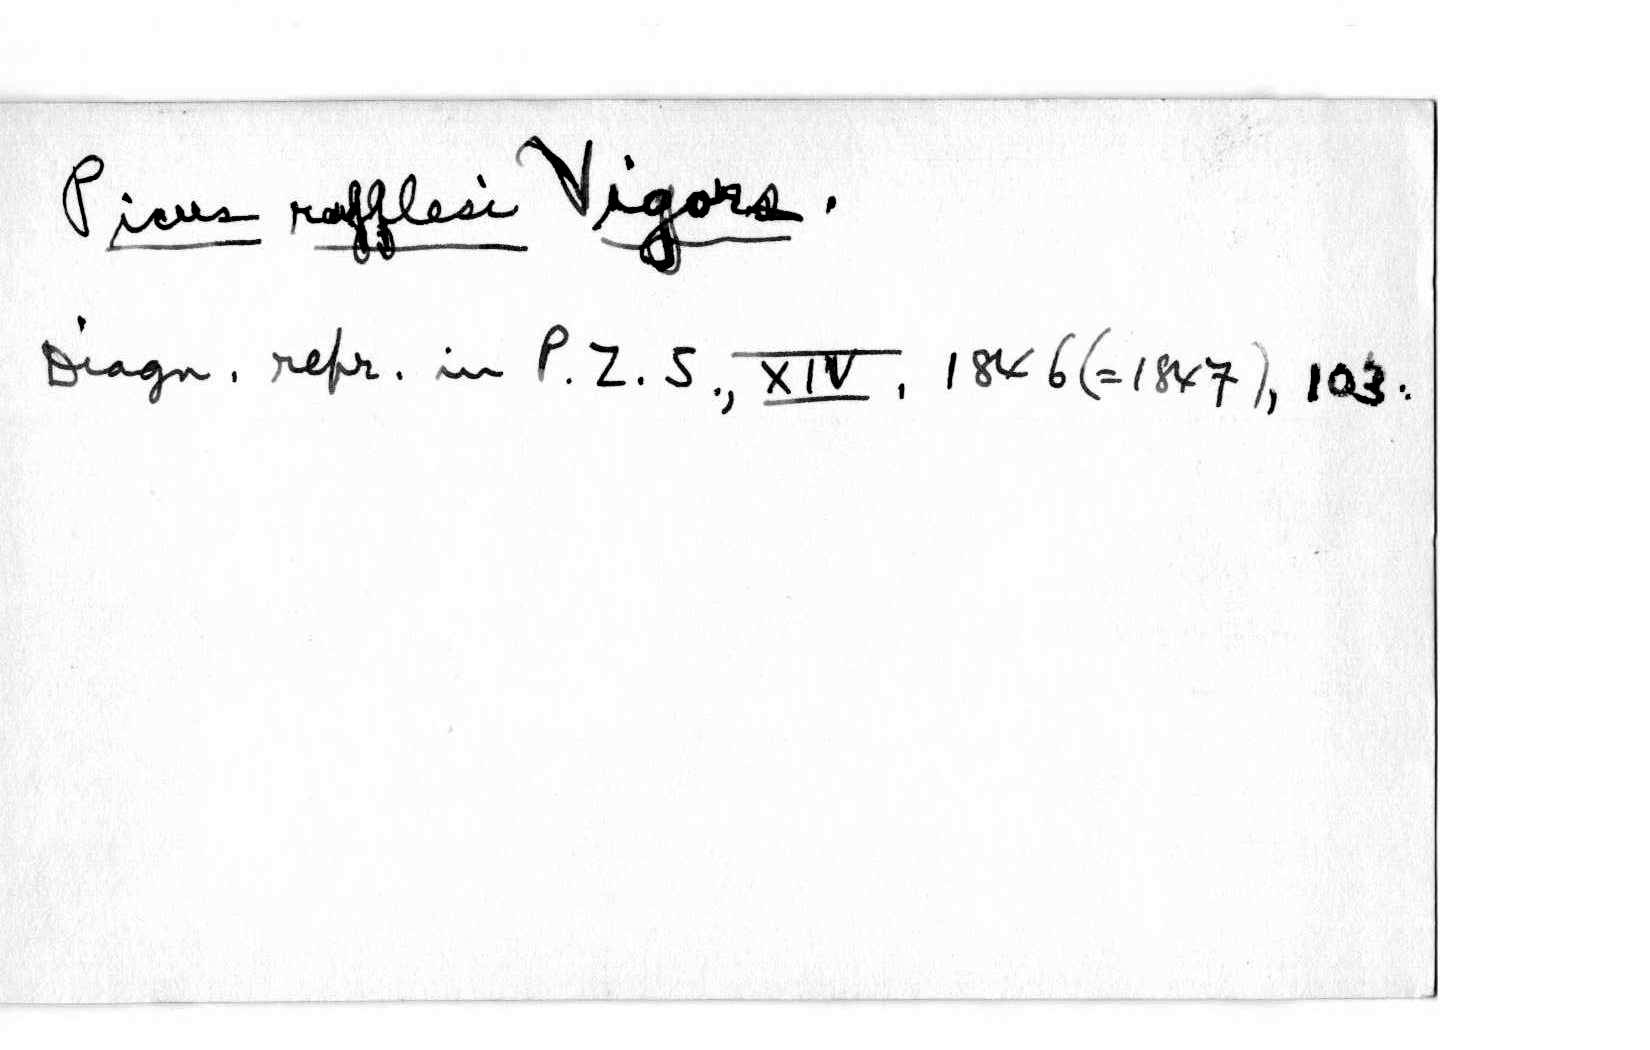 Picus rafflesi Vigors.
Diagn. repr. in P. Z. S., XIV, 1846 (=1847), 103.